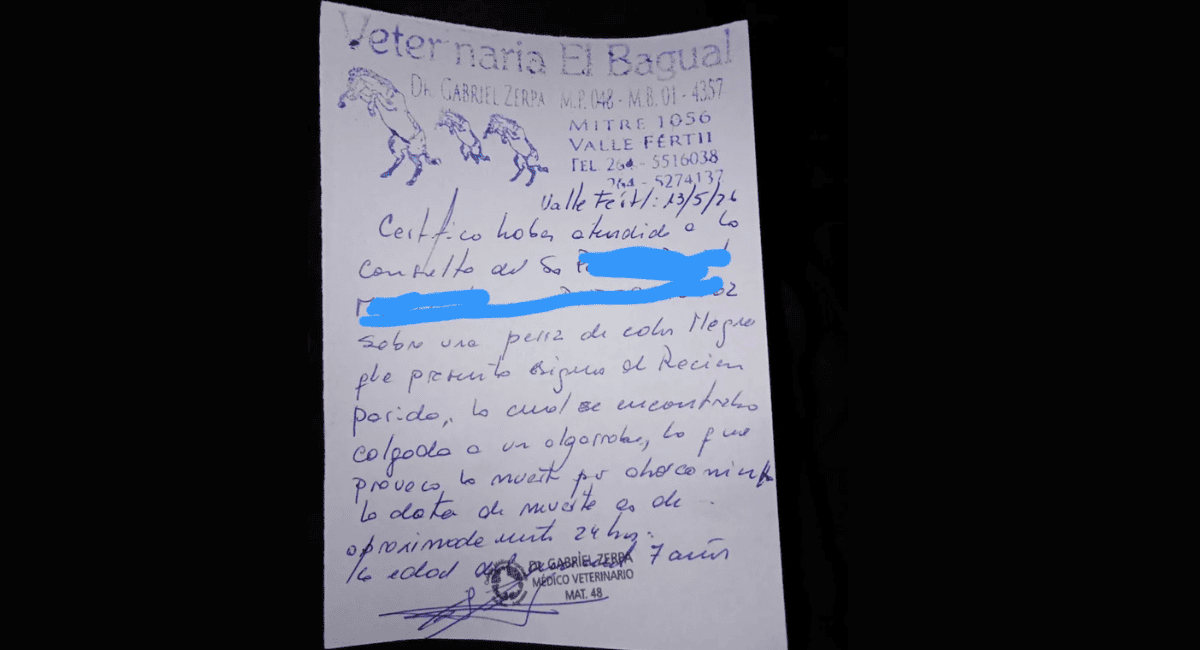 Veterinaria El Bagual
DR. GABRIEL ZERPA M.P. 048 - M.B. 01 - 4357
MITRE 1056
VALLE FÉRTIL
TEL. 264 - 5516038
264 - 5274137
Valle Fértil: 13/5/26
Certifico haber atendido a la
consulta del Sr
sobre una perra de color Negro
que presenta signos de Recien
parida, la cual se encontraba
colgada a un algarrobo, lo que
provoco la muerte por ahorcamiento
la data de muerte es de
aproximadamente 24 hs.
la edad 7 años
DR. GABRIEL ZERPA
MÉDICO VETERINARIO
MAT. 48